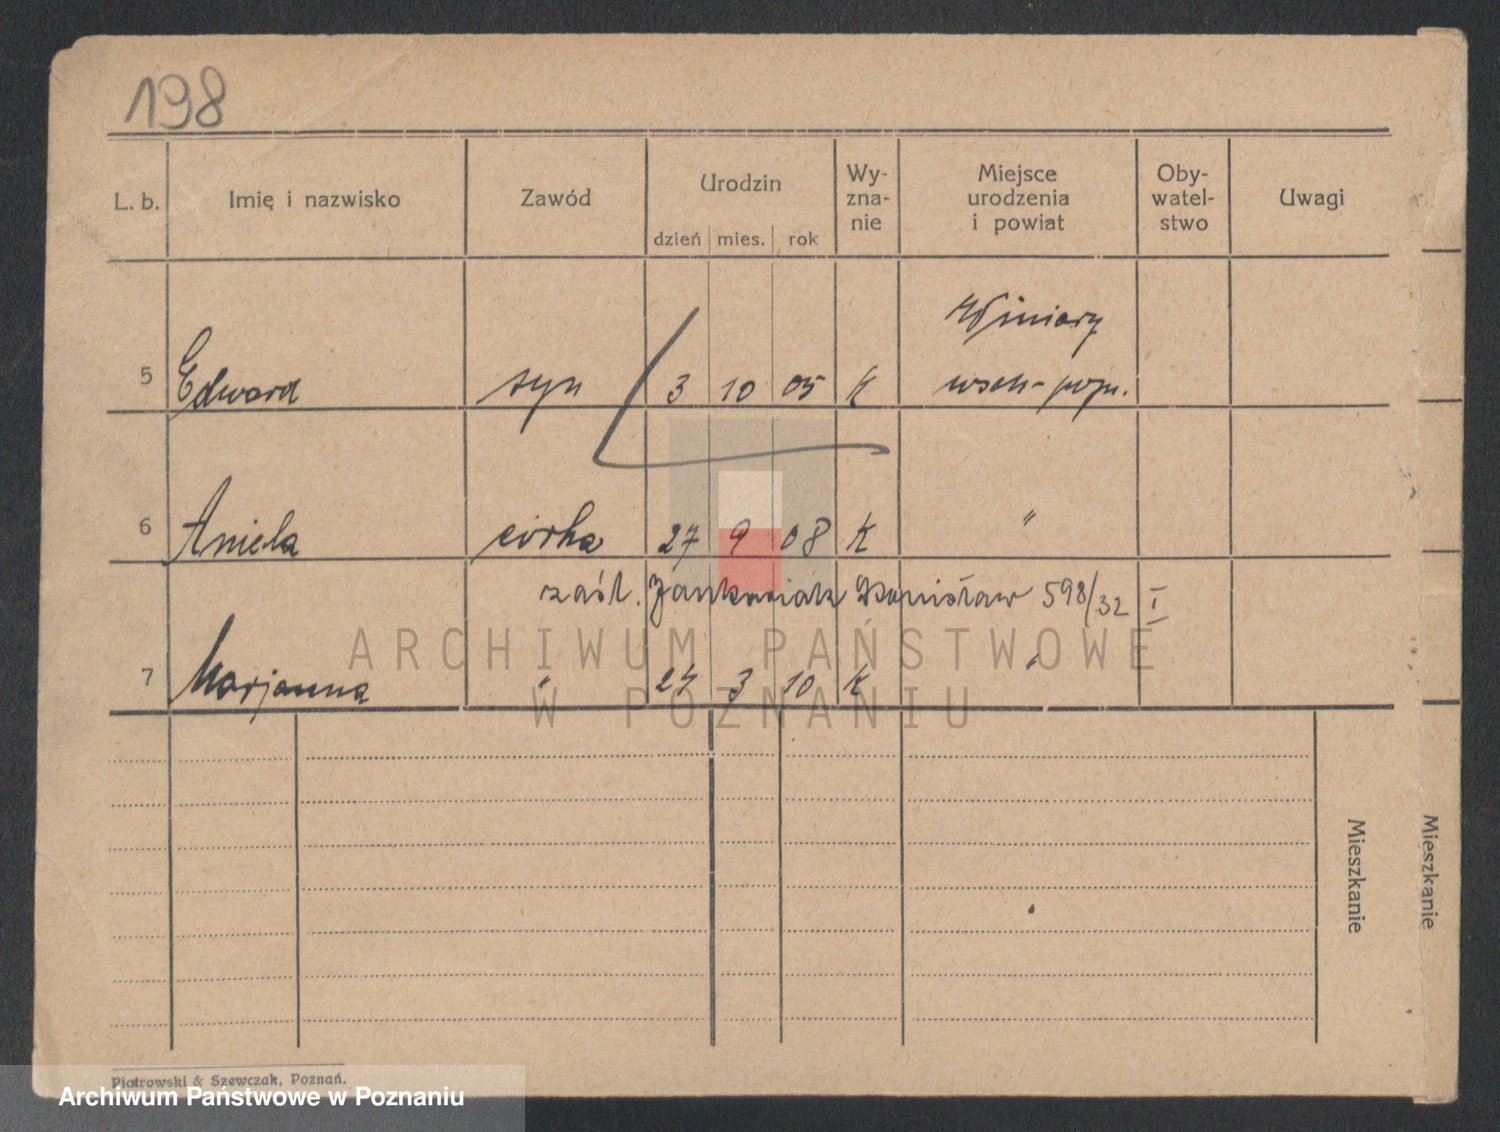 198
L. b. Imię i nazwisko Zawód Urodzin dzień mies. rok Wy-zna-nie Miejsce urodzenia i powiat Oby-watel-stwo Uwagi
Winiary
5 Edward syn 3 10 05 K wsch-pozn.
6 Aniela córka 27 9 08 K "
zaśl. Jankowiak Stanisław 598/32 I
7 Marjanna " 24 3 10 K "
ARCHIWUM PAŃSTWOWE
W POZNANIU
Mieszkanie
Mieszkanie
Piotrowski & Szewczak, Poznań.
Archiwum Państwowe w Poznaniu